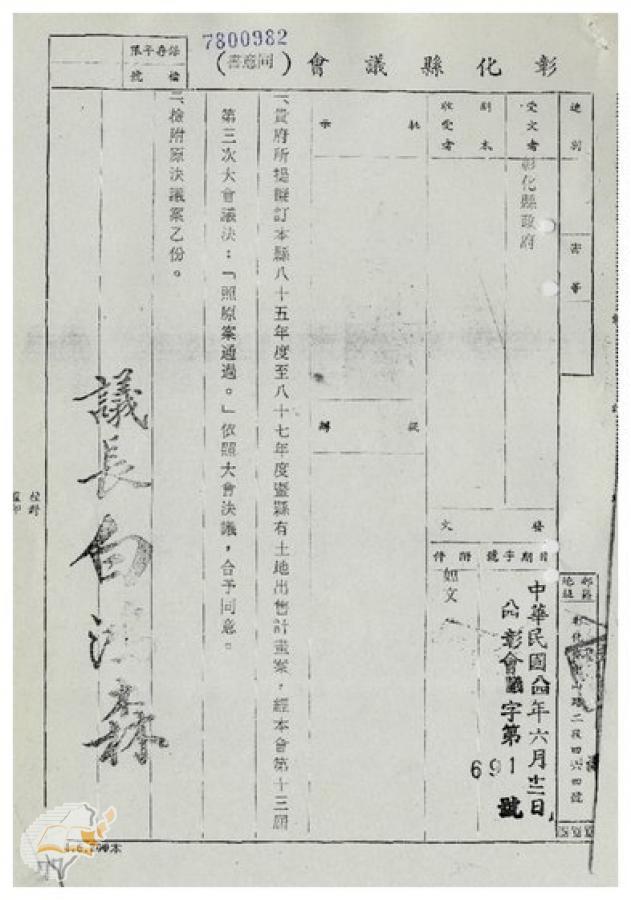 7800982
彰化縣議會（同意書）
檔號
速別
密等
受文者
彰化縣政府
副本
收受者
批示
擬辦
發文
日期
字號
附件
中華民國八四年六月
彰會議字第
691
號
如文
郵區
地址
路二段四六四號
一、貴府所提擬訂本縣八十五年度至八十七年度臺縣有土地出售計畫案，經本會第十三屆
第三次大會議決：「照原案通過。」依照大會決議，合予同意。
二、檢附原決議案乙份。
議長白鴻森
校對
監印